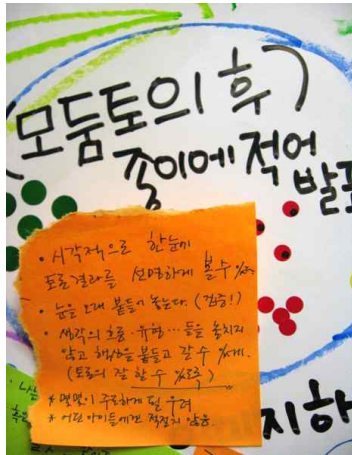 (모둠토의 후)
종이에 적어
발표
• 시각적으로 한눈에
토론결과를 선명하게 볼 수 있다
• 눈을 오래 붙들어 놓는다. (집중!)
• 생각의 흐름·유형… 등을 놓치지
않고 핵심을 붙들고 갈 수 있게.
(토론의 잘 할 수 있도록)
* 몇몇이 주도하게 될 우려
* 어린 아이들에겐 적절치 않음.
지하
나는